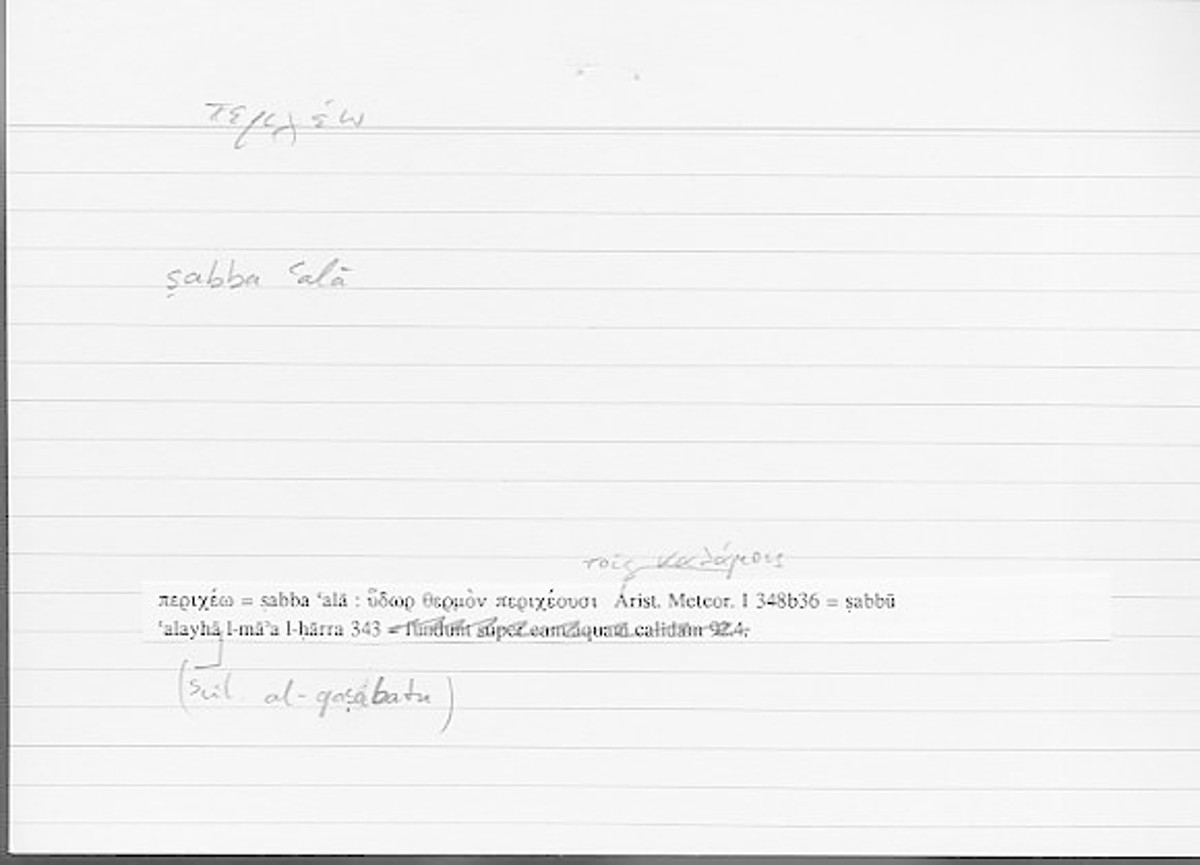 περιχέω
ṣabba ʿalā
τοῖς καλάμοις
περιχέω = ṣabba ʿalā : ὕδωρ θερμὸν περιχέουσι Arist. Meteor. I 348b36 = ṣabbū
ʿalayhā l-māʾa l-ḥārra 343 = fundunt super eam aquam calidam 92.4.
(scil. al-qaṣabatu)